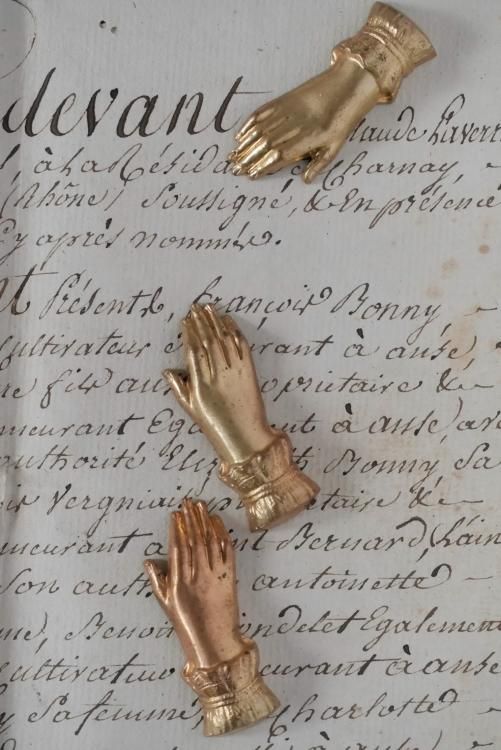 devant laude Laver
, à La Résid Charnay,
(Rhône) Soussigné, & En présence
Cy après nommés.
Présents, françois Bonny,
ultivateur urant à anse,
re fils opriétaire &
meurant Ega t à anse, ave
authorité Eli h Bonny Sa
Vergniais, p taire &
meurant a int Bernard, L'ain
Son auth antoinette
Benoi ondelet Egalement
ultivateu eurant à anse
Sa femme, Charlotte